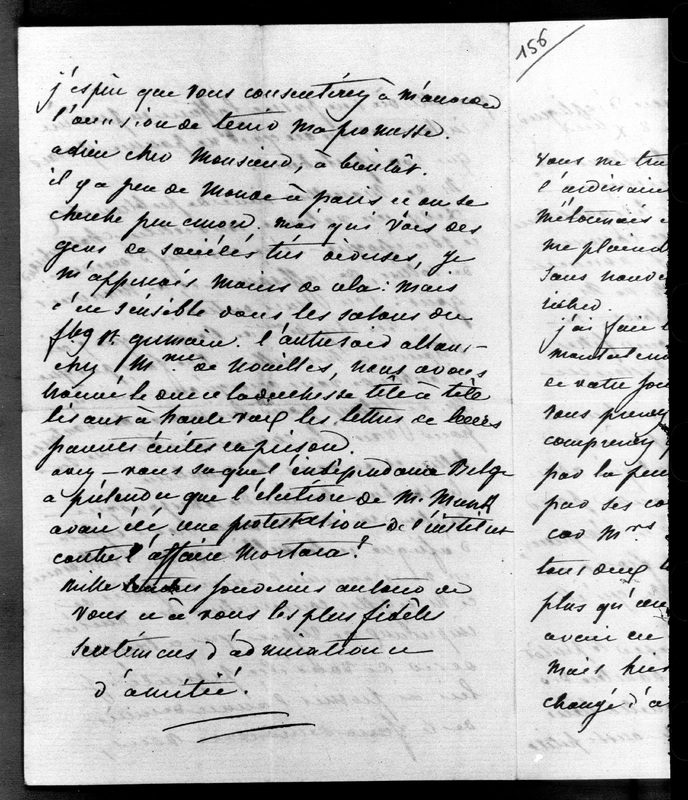 156
j'espère que vous consentirez à m'accorder
l'occasion de tenir ma promesse.
adieu cher Monsieur, à bientôt.
il y a peu de monde à paris et on se
cherche peu encore. moi qui vois des
gens de sociétés très diverses, je
m'apperçois moins de cela: mais
c'en sensible dans les salons du
fbg st germain. l'autre soir allant
chez Mme de Noailles, nous avons
trouvé le duc et la duchesse tête à tête
lisant à haute voix les lettres de
écrites en prison.
avez-vous su que l'indépendance Belge
a prétendu que l'élection de M. Munk
avait été une protestation de l'institut
contre l'affaire Mortara!
mille souvenirs autour de
vous et à vous les plus fidèles
sentimens d'admiration et
d'amitié.
vous me
l'ordinaire
m'étonnais
me plaind
sans nouve
j'ai fait
de votre
vous prenez
comprenez
par la
par ses
car Mrs
tous deux
plus qu'
avait
mais
changé d'a